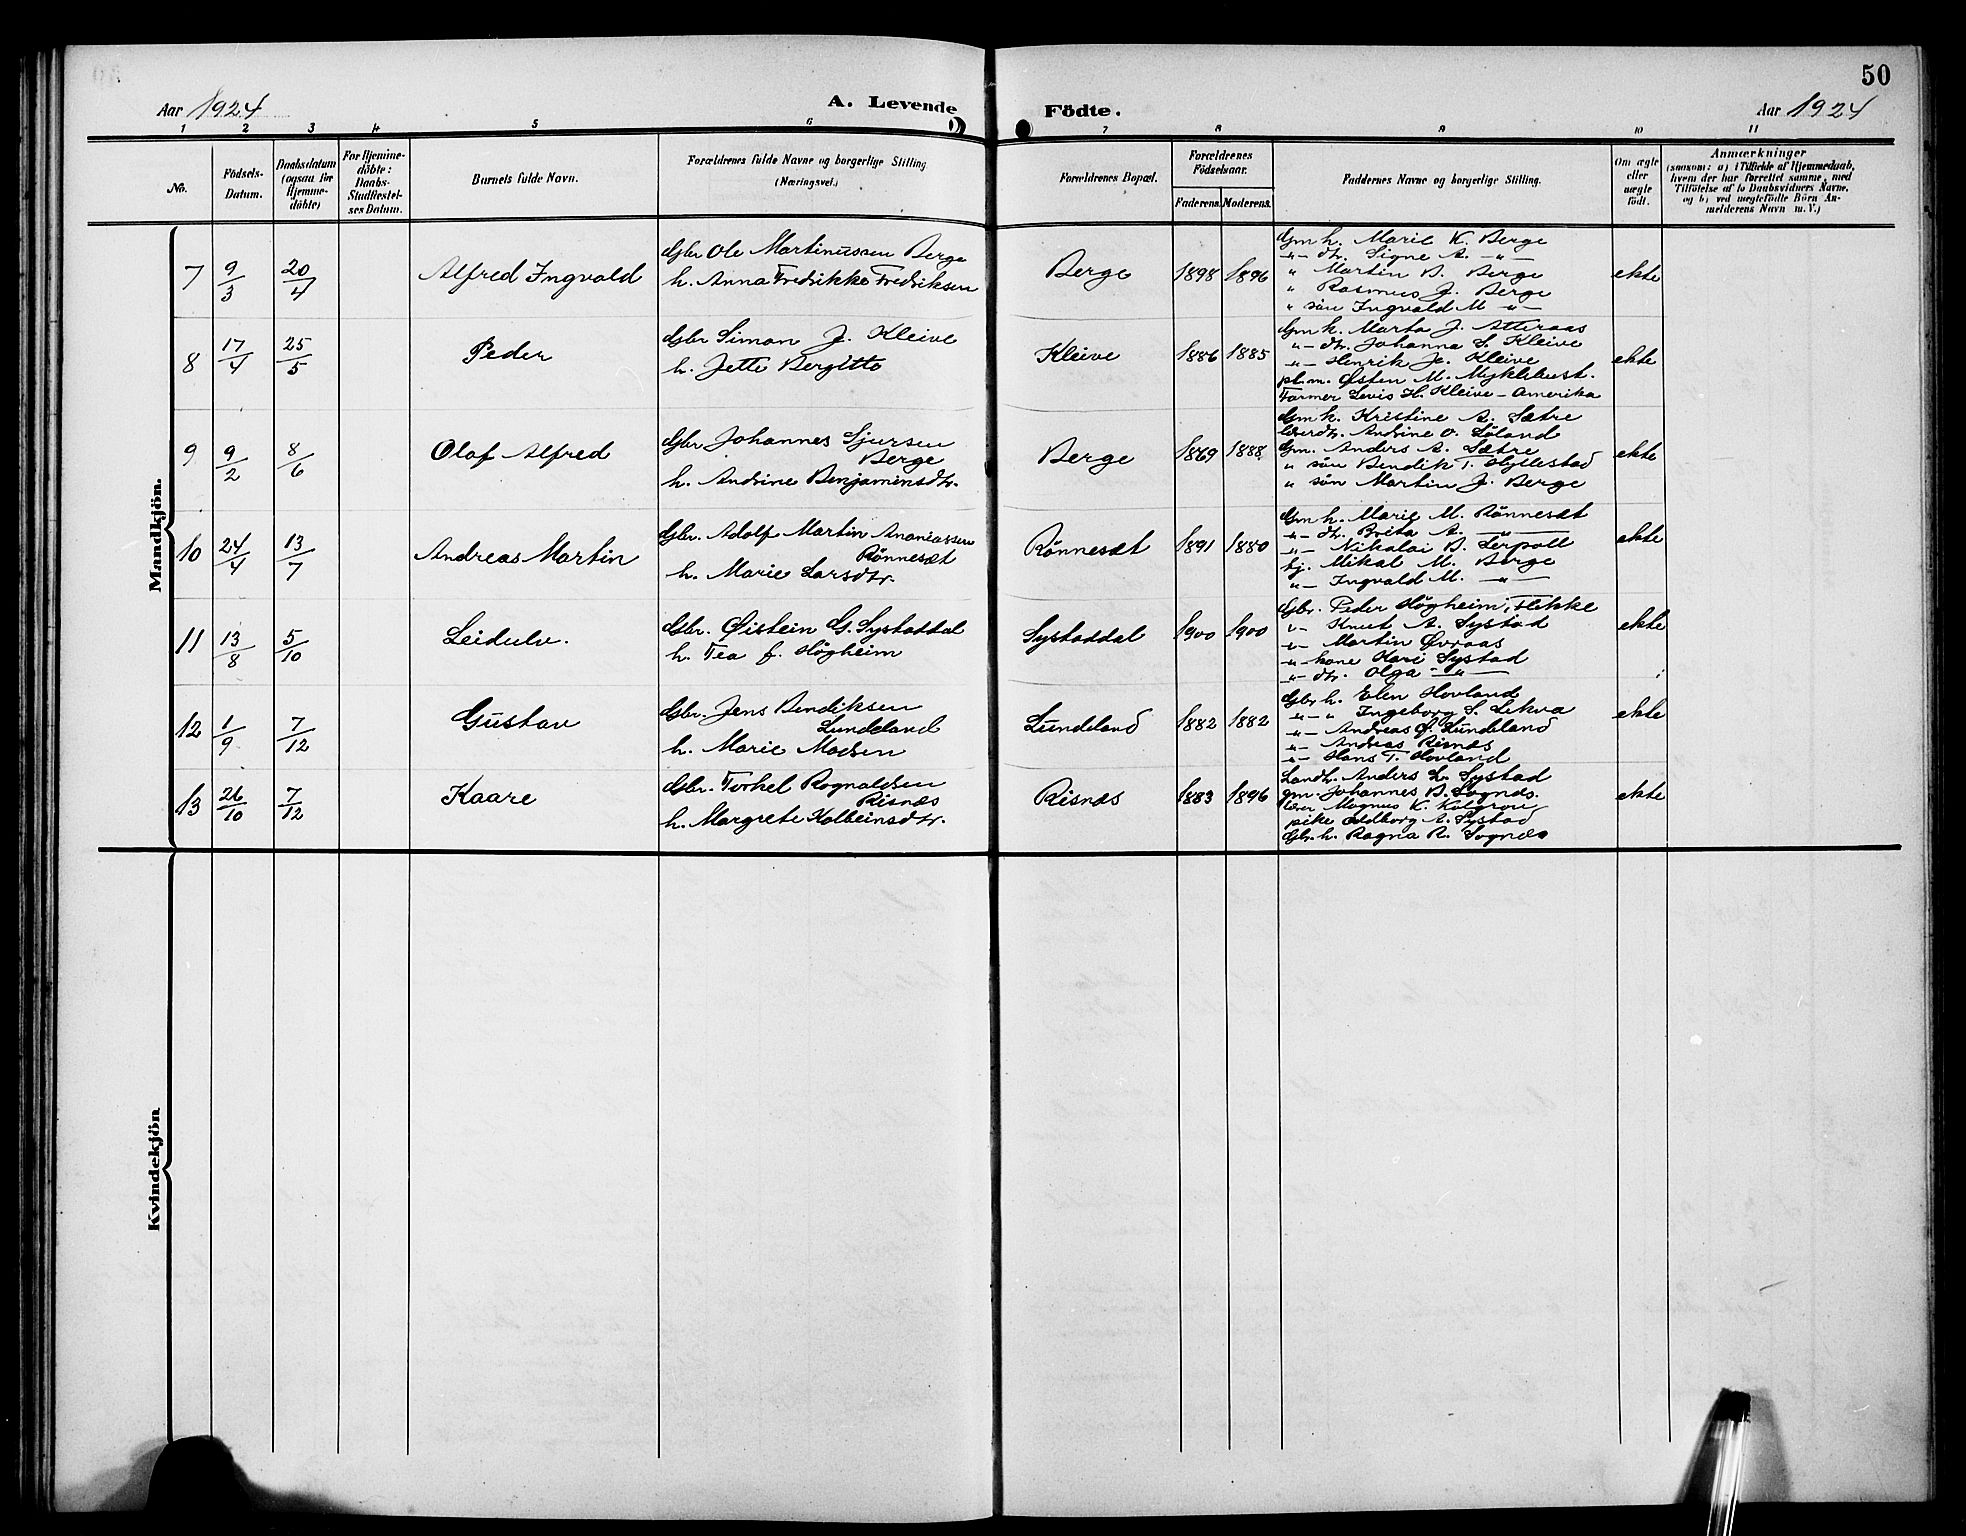 50
Aar 1924
A. Levende Födte.
Aar 1924
1 2 3 4 5 6 7 8 9 10 11
No.
Födsels-Datum.
Daabsdatum (ogsaa for Hjemme-döbte)
For Hjemme-döbte: Daabs-Stadfæstel-ses Datum.
Barnets fulde Navn.
Forældrenes fulde Navne og borgerlige Stilling (Næringsvei.)
Forældrenes Bopæl.
Forældrenes Födselsaar.
Faderens. Moderens.
Faddernes Navne og borgerlige Stilling.
Om ægte eller uægte födt.
Anmærkninger
(saasom: a) i Tilfælde af Hjemmedaab, hvem der har forrettet samme, med Tilföielse af to Daabsvidners Navne. og b) ved uægtefödte Börn An-melderens Navn m. V.)
Mandkjön.
7 9/3 20/4 Alfred Ingvald
Gbr Ole Martinussen Berge
h. Anna Fredrikke Fredriksen
Berge 1898 1896
Gm h. Marie K. Berge
"- dtr. Signe A. -"-
" Martin B. Berge
" Rasmus J. Berge
" sön Ingvald M -"-
ekte
8 17/4 25/5 Peder
Gbr Simon J. Kleive
h. Jette Bergitte
Kleive 1886 1885
Gm k. Marta J. Atteraas
"- dtr. Johanna S. Kleive
"- Henrik J. Kleive
pl.m. Østen M. Myklebust.
Farmer Levis H. Kleive - Amerika
ekte
9 9/2 8/6 Olaf Alfred
Gbr Johannes Sjursen
Berge
h. Andrine Benjaminsdtr.
Berge 1869 1888
Gm k. Kristine A. Sætre
Andrine O. Söland
Gm. Anders A. Sætre
" sön Bendik T. Hyllestad
" sön Martin J. Berge
ekte
10 24/4 13/7 Andreas Martin
Gbr. Adolf Martin Ananiassen
Rönnesæt
h. Marie Larsdtr.
Rönnesæt 1891 1880
Gm h. Marie M. Rönnesæt
"- dtr. Brita A. -"-
"- Nikolai B. Lerpoll
Mikal M. Berge
"- Ingvald M. -"-
ekte
11 13/8 5/10 Leidulv.
Gbr. Øistein G. Systaddal
h. Tea f. Högheim
Systaddal 1900 1900
Gbr. Peder Högheim, Flekke
"- Knut A. Systad
"- Martin Øvraas
"- kone Kari Systad
"- dtr. Olga -"-
ekte
12 1/9 7/12 Gustav
Gbr. Jens Bendiksen
Lundeland
h. Marie Madsen
Lundeland 1882 1882
Gbr h. Elen Hovland
"- " Ingeborg S. Lekva
"- Andreas Ø. Lundeland
"- Andreas Risnes
"- Hans T. Hovland
ekte
13 26/10 7/12 Kaare
Gbr. Torkel Rognaldsen
Risnes
h. Margrete Kolbeinsdtr.
Risnes 1883 1896
Landh. Anders L. Systad
gm. Johannes B. Sognes.
Magnus K. Kolgrov
pike Oddborg A. Systad
Gbr. h. Ragna R. Sognes
ekte
Kvindekjön